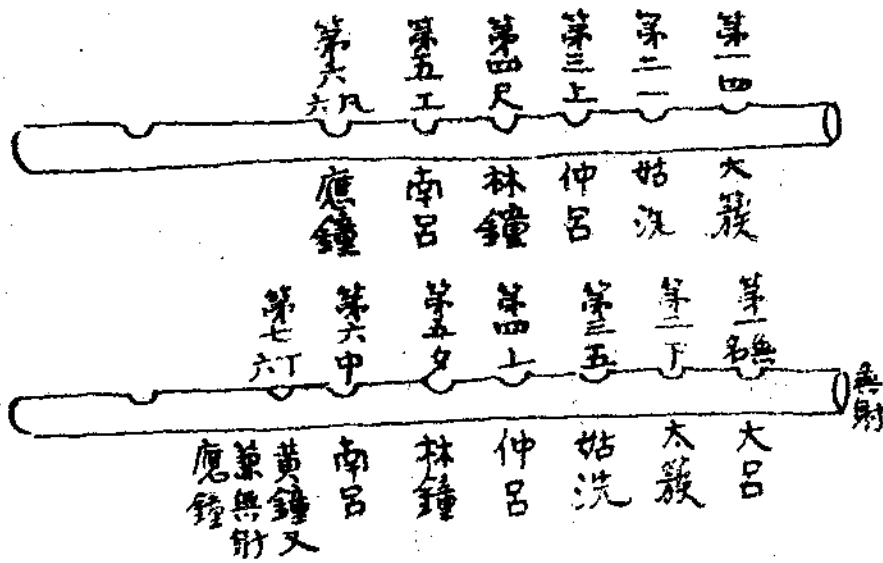 第一四
第二一
第三上
第四尺
第五工
第六凡
六
大簇
姑洗
仲呂
林鐘
南呂
應鐘
無射
第一無名
第二下
第三五
第四上
第五夕
第六中
第七丁
六
大呂
太簇
姑洗
仲呂
林鐘
南呂
黃鐘又
兼無射
應鐘